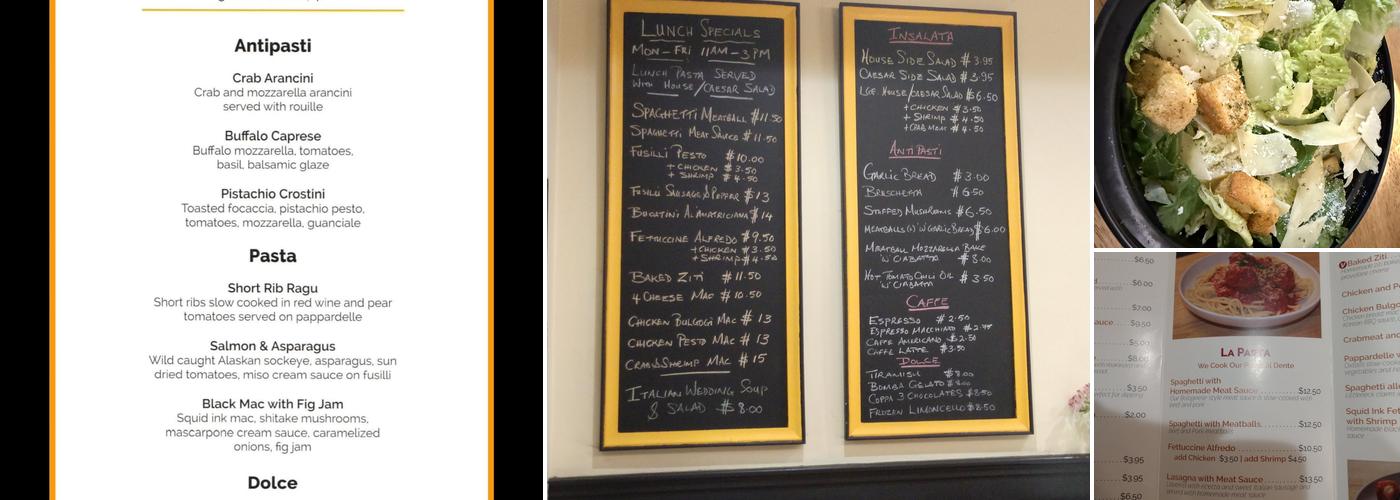 Antipasti
Crab Arancini
Crab and mozzarella arancini
served with rouille
Buffalo Caprese
Buffalo mozzarella, tomatoes,
basil, balsamic glaze
Pistachio Crostini
Toasted focaccia, pistachio pesto,
tomatoes, mozzarella, guanciale
Pasta
Short Rib Ragu
Short ribs slow cooked in red wine and pear
tomatoes served on pappardelle
Salmon & Asparagus
Wild caught Alaskan sockeye, asparagus, sun
dried tomatoes, miso cream sauce on fusilli
Black Mac with Fig Jam
Squid ink mac, shitake mushrooms,
mascarpone cream sauce, caramelized
onions, fig jam
Dolce
LUNCH SPECIALS
MON-FRI 11AM-3PM
LUNCH PASTA SERVED
WITH HOUSE/CAESAR SALAD
SPAGHETTI MEATBALL $11.50
SPAGHETTI MEAT SAUCE $11.50
FUSILLI PESTO $10.00
+ CHICKEN $3.50
+ SHRIMP $4.50
FUSILLI SAUSAGE & PEPPER $13
BUCATINI A. AMATRICIANA $14
FETTUCCINE ALFREDO $9.50
+CHICKEN $3.50
+SHRIMP $4.50
BAKED ZITI $11.50
4 CHEESE MAC $10.50
CHICKEN BULGOGI MAC $13
CHICKEN PESTO MAC $13
CRAB & SHRIMP MAC $15
ITALIAN WEDDING SOUP
& SALAD $8.00
INSALATA
HOUSE SIDE SALAD $3.95
CAESAR SIDE SALAD $3.95
LGE HOUSE/CAESAR SALAD $6.50
+CHICKEN $3.50
+ SHRIMP $4.50
+CRAB MEAT $4.50
ANTIPASTI
GARLIC BREAD $3.00
BRUSCHETTA $6.50
STUFFED MUSHROOMS $6.50
MEATBALLS W GARLIC BREAD $6.00
MEATBALL MOZZARELLA BAKE
'W' CIABATTA $8.00
HOT TOMATO CHILI OIL $3.50
'W' CIABATTA
CAFFE
ESPRESSO $2.50
ESPRESSO MACCHIATO
CAFFE AMERICANO $2.50
CAFFE LATTE $3.50
DOLCE
TIRAMISU $8.00
BOMBA GELATO $8.00
COPPA 3 CHOCOLATES $8.50
FROZEN LIMONCELLO $8.50
$6.50
$6.00
$7.00
auce $9.50
$5.00
$8.00
$3.50
$2.00
$3.95
$3.95
$6.50
LA PASTA
We Cook Our Dente
Spaghetti with
Homemade Meat Sauce $12.50
Spaghetti with Meatballs $12.50
Beef and Pork meatballs
Fettuccine Alfredo $10.50
add Chicken $3.50 | add Shrimp $4.50
Lasagna with Meat Sauce $13.50
Baked Ziti
Chicken and Pe
Chicken Bulgo
Crabmeat and
Pappardelle
Spaghetti
Squid Ink Fet
with Shrimp
sauce